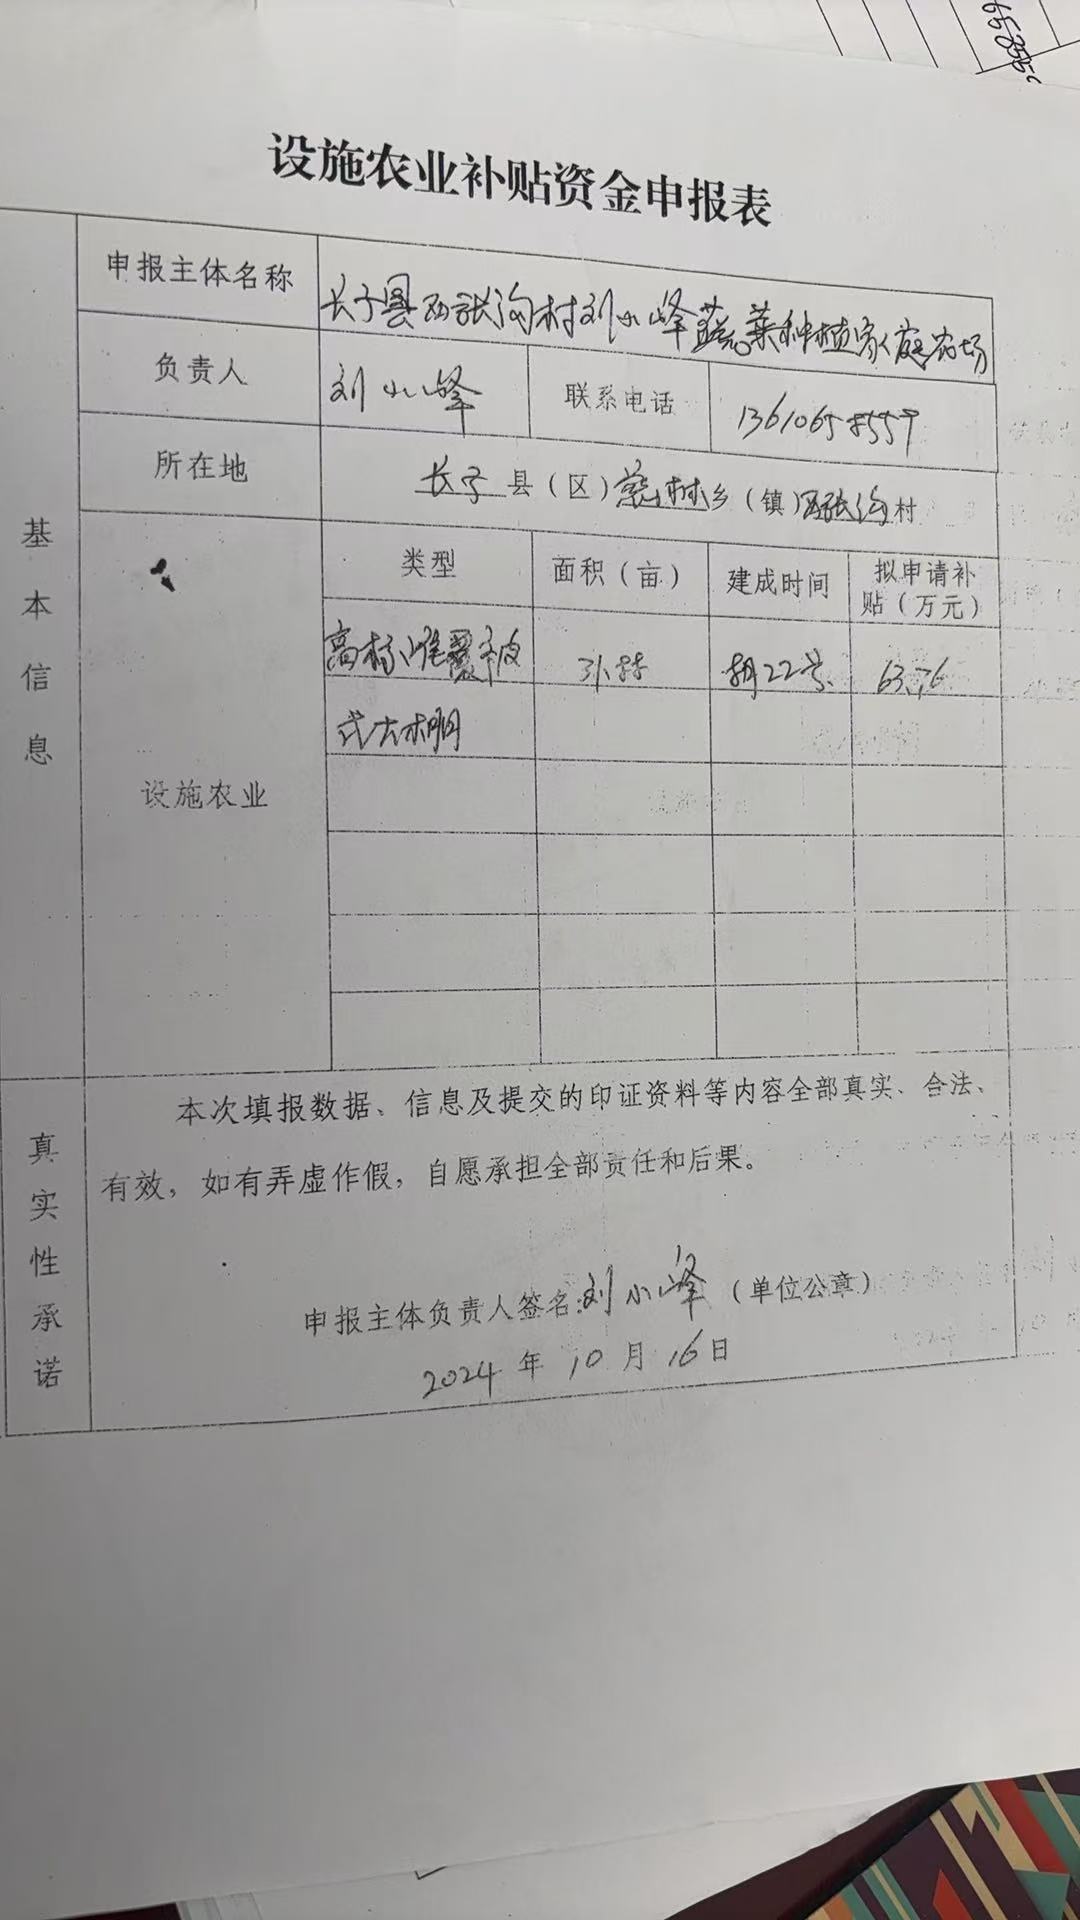 设施农业补贴资金申报表
申报主体名称
长子县西张沟村刘小峰蔬菜种植家庭农场
负责人
刘小峰
联系电话
13610658559
所在地
长子县(区)慈林乡(镇)西张沟村
基本信息
设施农业
类型
面积(亩)
建成时间
拟申请补
贴(万元)
高标准覆被
31.88
月22号
63.76
式大棚
真实性承诺
本次填报数据、信息及提交的印证资料等内容全部真实、合法、
有效,如有弄虚作假,自愿承担全部责任和后果。
申报主体负责人签名:刘小峰(单位公章)
2024年10月16日